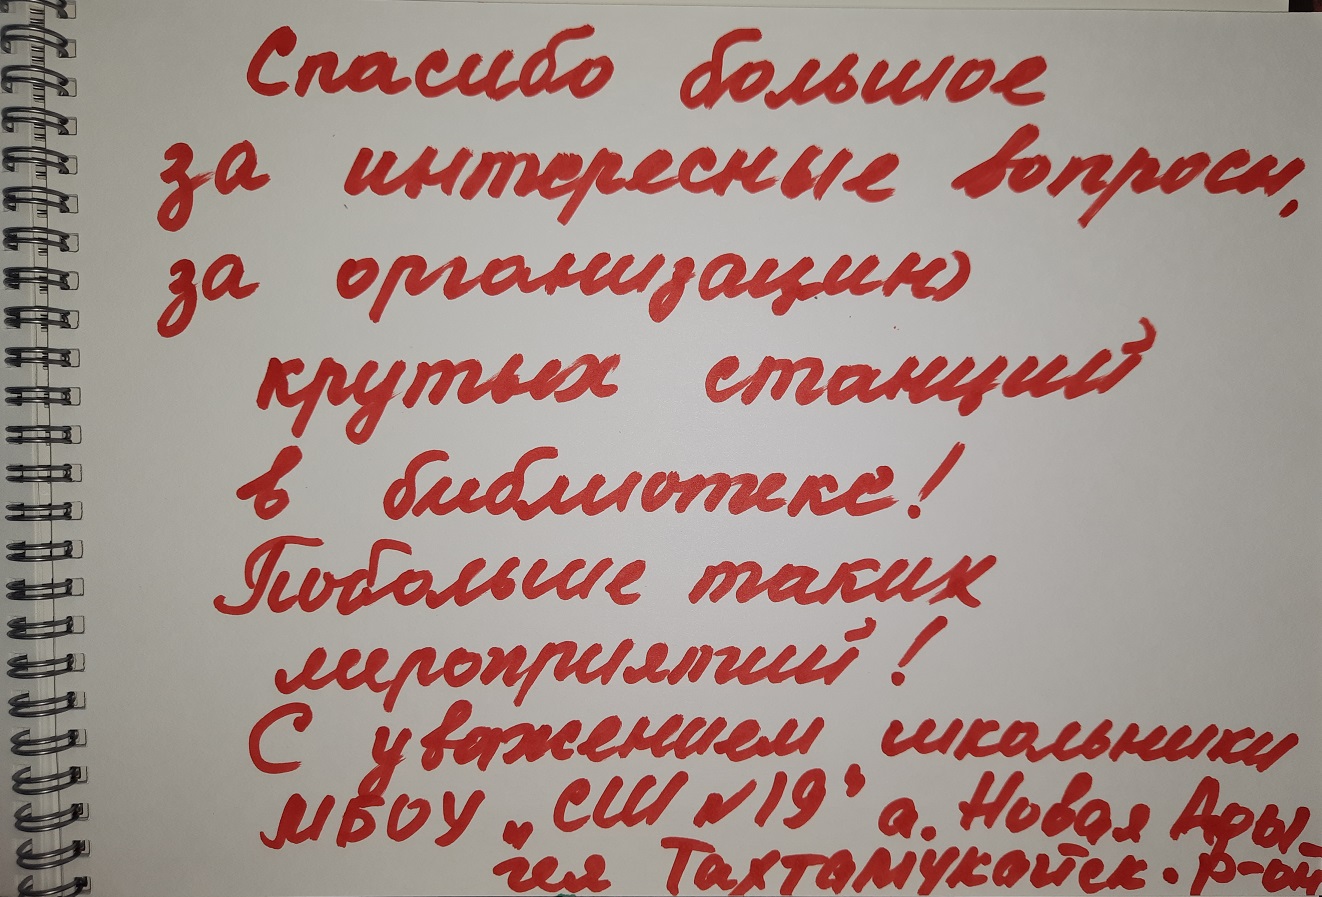 Спасибо большое
за интересные вопросы,
за организацию
крутых станций
в библиотеке!
Побольше таких
мероприятий!
С уважением, школьники
МБОУ „СШ №19" а. Новая Ады-
гея Тахтамукайск. р-он